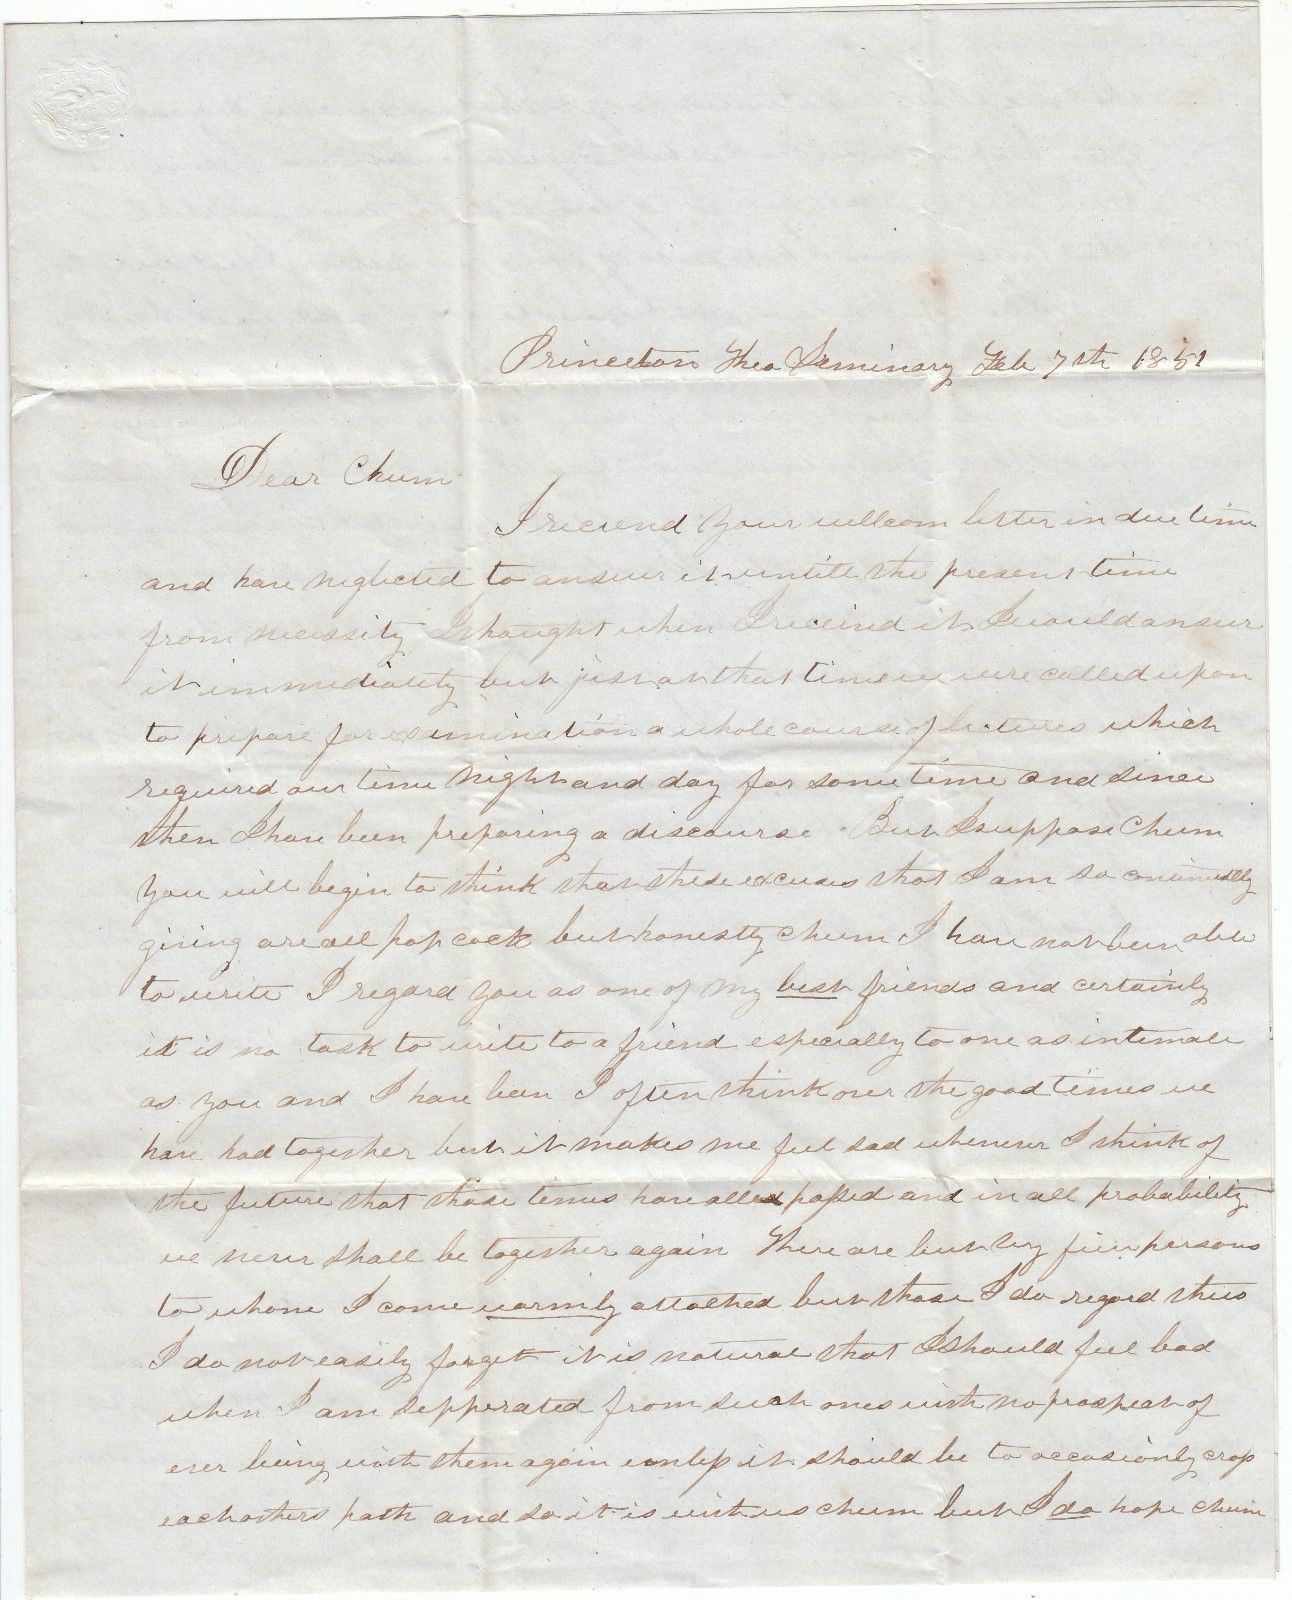 Princeton Theo Seminary Feb 7th 1851
Dear Chum
I recievd your wellcom letter in due time
and have neglected to answer it untill the present time
from necessity I thought when I recievd it I would answer
it immediately but just at that time we were called upon
to prepare for examination a whole course of lectures which
required our time night and day for some time and since
then I have been preparing a discourse. But I suppose Chum
you will begin to think that these excuses that I am so continually
giving are all pop cock but honestly chum I have not been able
to write I regard you as one of my best friends and certainly
it is no task to write to a friend especially to one as intemate
as you and I have been I often think over the good times we
have had together but it makes me feel sad whenever I think of
the future that those times have all passed and in all probability
we never shall be together again There are but very few persons
to whome I come warmly attached but those I do regard thus
I do not easily forget it is natural that I should feel bad
when I am sepperated from such ones with no prospect of
ever being with them again unless it should be to occasionly cross
each others path and so it is with us chum but I do hope chum